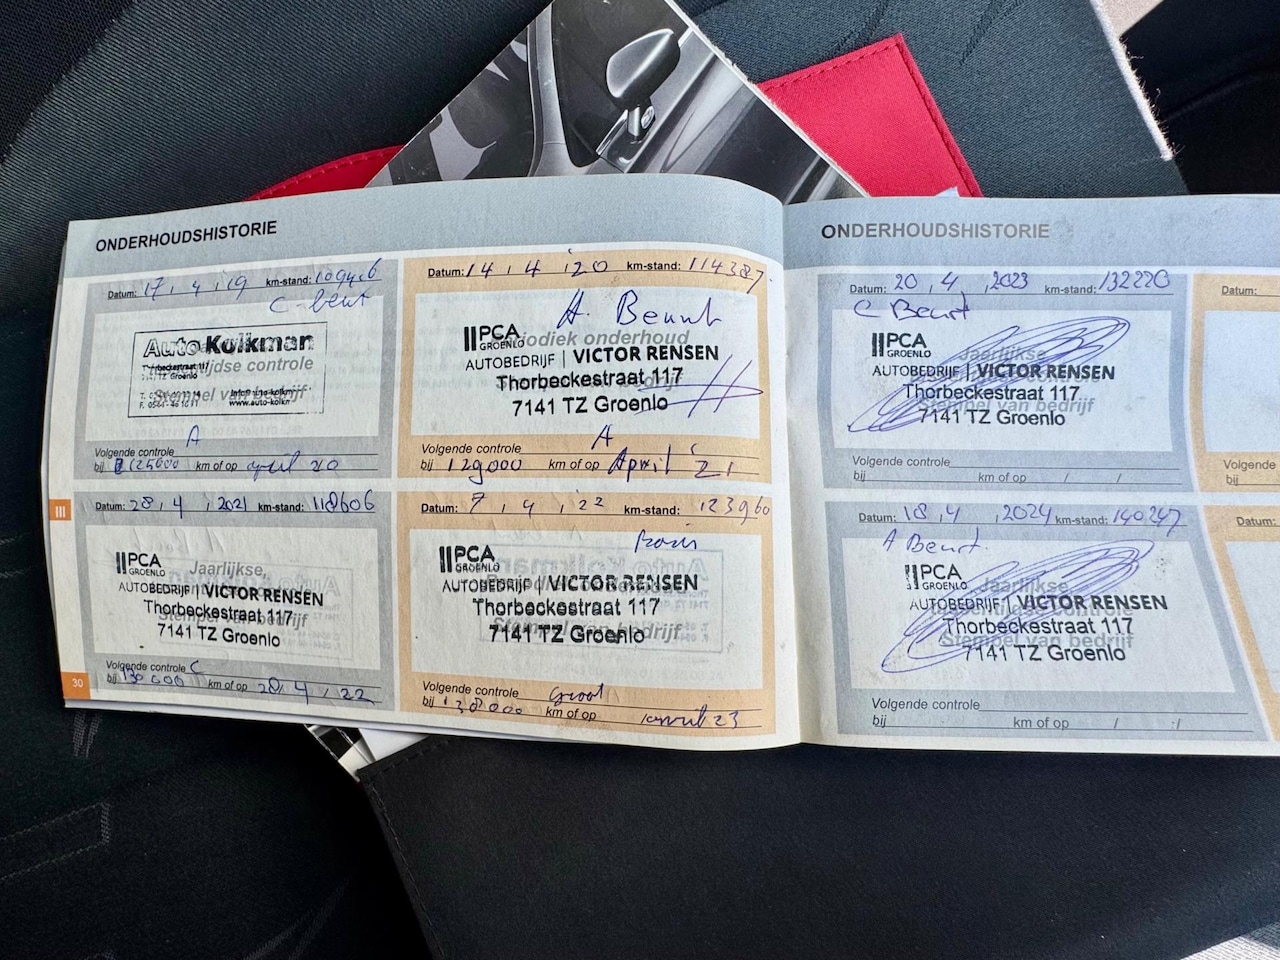 ONDERHOUDSHISTORIE
Datum: 17 , 4 , 19 km-stand: 109426
C-beurt
Auto Kolkman
Thorbeckestraat 117
7141 TZ Groenlo
www.auto-kolkn
Stempel van bedrijf
A
Volgende controle
bij 125000 km of op april 20
Datum: 14 , 4 , '20 km-stand: 114387
A. Beurt
Periodiek onderhoud
PCA
GROENLO
AUTOBEDRIJF | VICTOR RENSEN
Thorbeckestraat 117
7141 TZ Groenlo
A
Volgende controle
bij 129000 km of op April '21
Datum: 28 , 4 , 2021 km-stand: 118606
PCA
GROENLO
Jaarlijkse
AUTOBEDRIJF | VICTOR RENSEN
Thorbeckestraat 117
Stempel van bedrijf
7141 TZ Groenlo
Volgende controle C
bij 130 000 km of op 28 , 4 , 22
Datum: 7 , 4 , '22 km-stand: 123960
PCA
GROENLO
AUTOBEDRIJF | VICTOR RENSEN
Thorbeckestraat 117
Stempel van bedrijf
7141 TZ Groenlo
Volgende controle Groot
bij 138000 km of op / april 23
III
30
ONDERHOUDSHISTORIE
Datum: 20 , 4 , 2023 km-stand: 132220
C Beurt
PCA
GROENLO
Jaarlijkse
AUTOBEDRIJF | VICTOR RENSEN
Thorbeckestraat 117
Stempel van bedrijf
7141 TZ Groenlo
Volgende controle
bij km of op / /
Datum: 18 , 4 , 2024 km-stand: 140247
A Beurt.
PCA
GROENLO
Jaarlijkse
AUTOBEDRIJF | VICTOR RENSEN
Thorbeckestraat 117
Stempel van bedrijf
7141 TZ Groenlo
Volgende controle
bij km of op / /
Datum:
Volgende
bij
Datum: